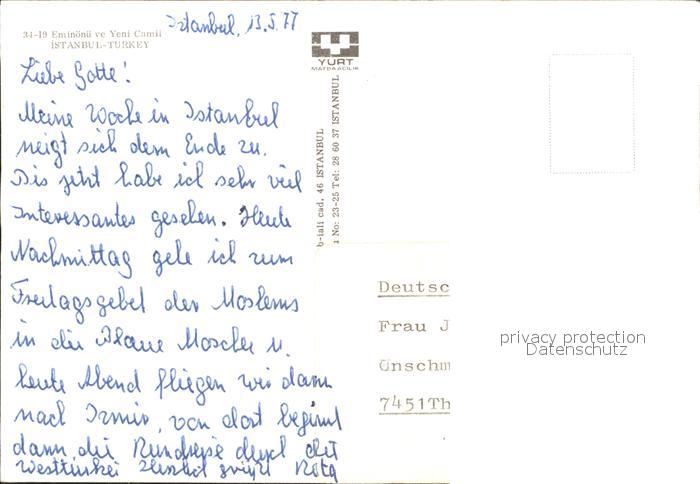 Istanbul, 13.5.77
34-19 Eminönü ve Yeni Camii
İSTANBUL-TURKEY
Liebe Gotte!
Meine Woche in Istanbul
neigt sich dem Ende zu.
Bis jetzt habe ich sehr viel
Interessantes gesehen. Heute
Nachmittag gehe ich zum
Freitagsgebet der Moslems
in die Blaue Moschee u.
heute Abend fliegen wir dann
nach Izmir, von dort beginnt
dann die Rundreise durch die
Westtürkei Herzlich grüßt
YURT
MATBAACILIK
b-iali cad. 46 İSTANBUL
No: 23-25 Tel: 28 60 37 İSTANBUL
Deutsc
Frau J
Unschm
7451Th
privacy protection
Datenschutz